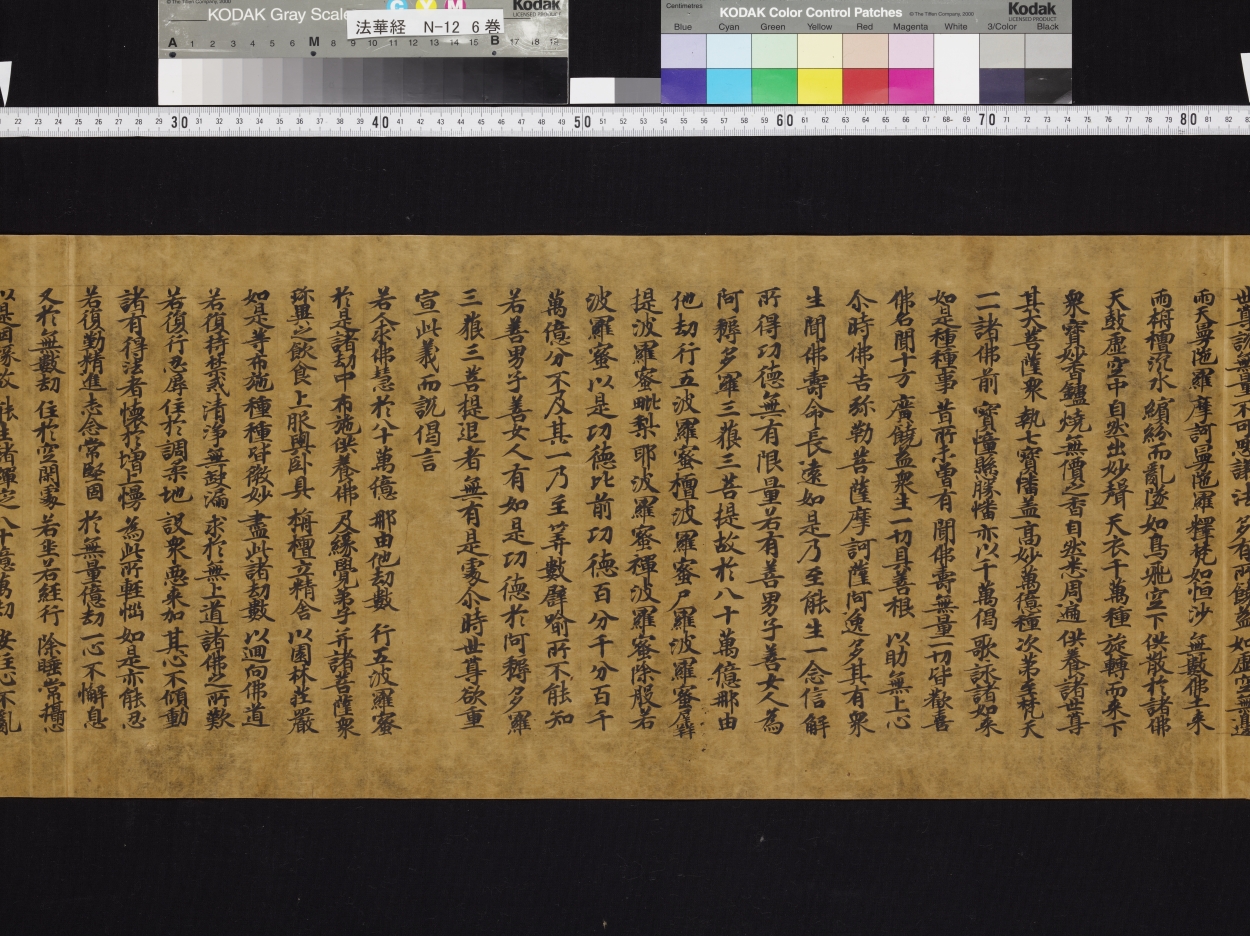 © The Tiffen Company, 2000
KODAK Gray Scale
C Y M
Kodak
LICENSED PRODUCT
法華経 N-12 6巻
A 1 2 3 4 5 6 M 8 9 10 11 12 13 14 15 B 17 18 19
Centimetres
KODAK Color Control Patches
© The Tiffen Company, 2000
Kodak
LICENSED PRODUCT
Blue Cyan Green Yellow Red Magenta White 3/Color Black
22 23 24 25 26 27 28 29 30 31 32 33 34 35 36 37 38 39 40 41 42 43 44 45 46 47 48 49 50 51 52 53 54 55 56 57 58 59 60 61 62 63 64 65 66 67 68 69 70 71 72 73 74 75 76 77 78 79 80 81 82
世尊說無量不可思議法多有所饒益如虛空無邊
雨天曼陁羅摩訶曼陁羅釋梵如恒沙無數佛土來
雨栴檀沉水繽紛而亂墜如鳥飛空下供散於諸佛
天鼓虛空中自然出妙聲天衣千萬種旋轉而來下
衆寶妙香鑪燒無價之香自然悉周遍供養諸世尊
其大菩薩衆執七寶幡蓋高妙萬億種次第至梵天
一一諸佛前寶幢懸勝幡亦以千萬偈歌詠諸如來
如是種種事昔所未曾有聞佛壽無量一切皆歡喜
佛名聞十方廣饒益衆生一切具善根以助無上心
尒時佛告弥勒菩薩摩訶薩阿逸多其有衆
生聞佛壽命長遠如是乃至能生一念信解
所得功德無有限量若有善男子善女人為
阿耨多羅三藐三菩提故於八十萬億那由
他劫行五波羅蜜檀波羅蜜尸羅波羅蜜羼
提波羅蜜毗梨耶波羅蜜禪波羅蜜除般若
波羅蜜以是功德比前功德百分千分百千
萬億分不及其一乃至筭數譬喻所不能知
若善男子善女人有如是功德於阿耨多羅
三藐三菩提退者無有是處尒時世尊欲重
宣此義而說偈言
若人求佛慧於八十萬億那由他劫數行五波羅蜜
於是諸劫中布施供養佛及緣覺弟子并諸菩薩衆
珎異之飲食上服與臥具栴檀立精舍以園林莊嚴
如是等布施種種皆微妙盡此諸劫數以迴向佛道
若復持禁戒清淨無缺漏求於無上道諸佛之所歎
若復行忍辱住於調柔地設衆惡來加其心不傾動
諸有得法者懷於增上慢為此所輕惱如是亦能忍
若復勤精進志念常堅固於無量億劫一心不懈息
又於無數劫住於空閑處若坐若經行除睡常攝心
以是因緣故能生諸禪定八十億萬劫安住心不亂